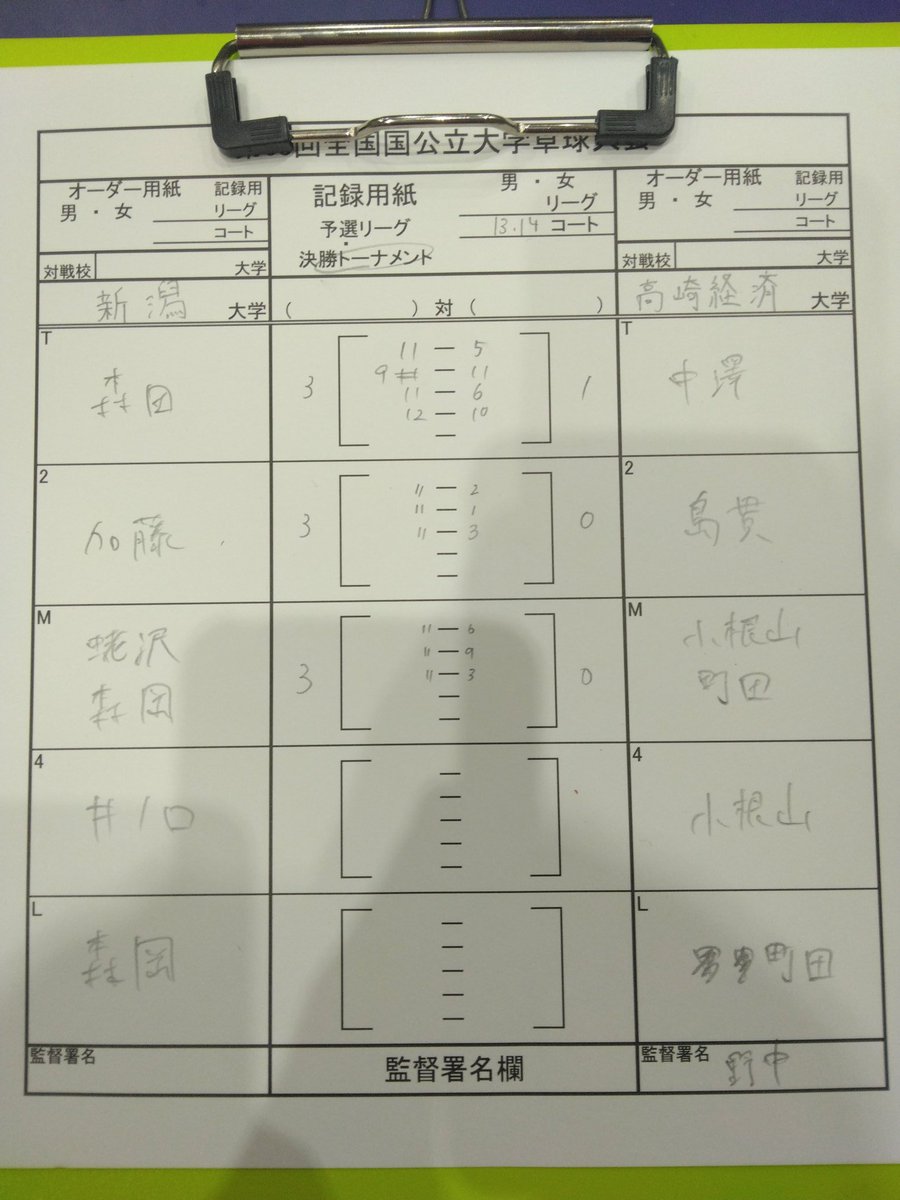 回全国国公立大学卓球大会
オーダー用紙 記録用
男・女 リーグ
コート
対戦校 大学
新潟 大学
記録用紙 男・女
リーグ
予選リーグ 13.14 コート
・
決勝トーナメント
( ) 対 ( )
オーダー用紙 記録用
男・女 リーグ
コート
対戦校 大学
高崎経済 大学
T
森田
3
11 — 5
9 — 11
11 — 6
12 — 10
—
1
T
中澤
2
加藤
3
11 — 2
11 — 1
11 — 3
—
—
0
2
島貫
M
蛯沢
森岡
3
11 — 6
11 — 9
11 — 3
—
—
0
M
小根山
町田
4
井ノ口
—
—
—
—
—
4
小根山
L
森岡
—
—
—
—
—
L
町田
監督署名
監督署名欄
監督署名 野中